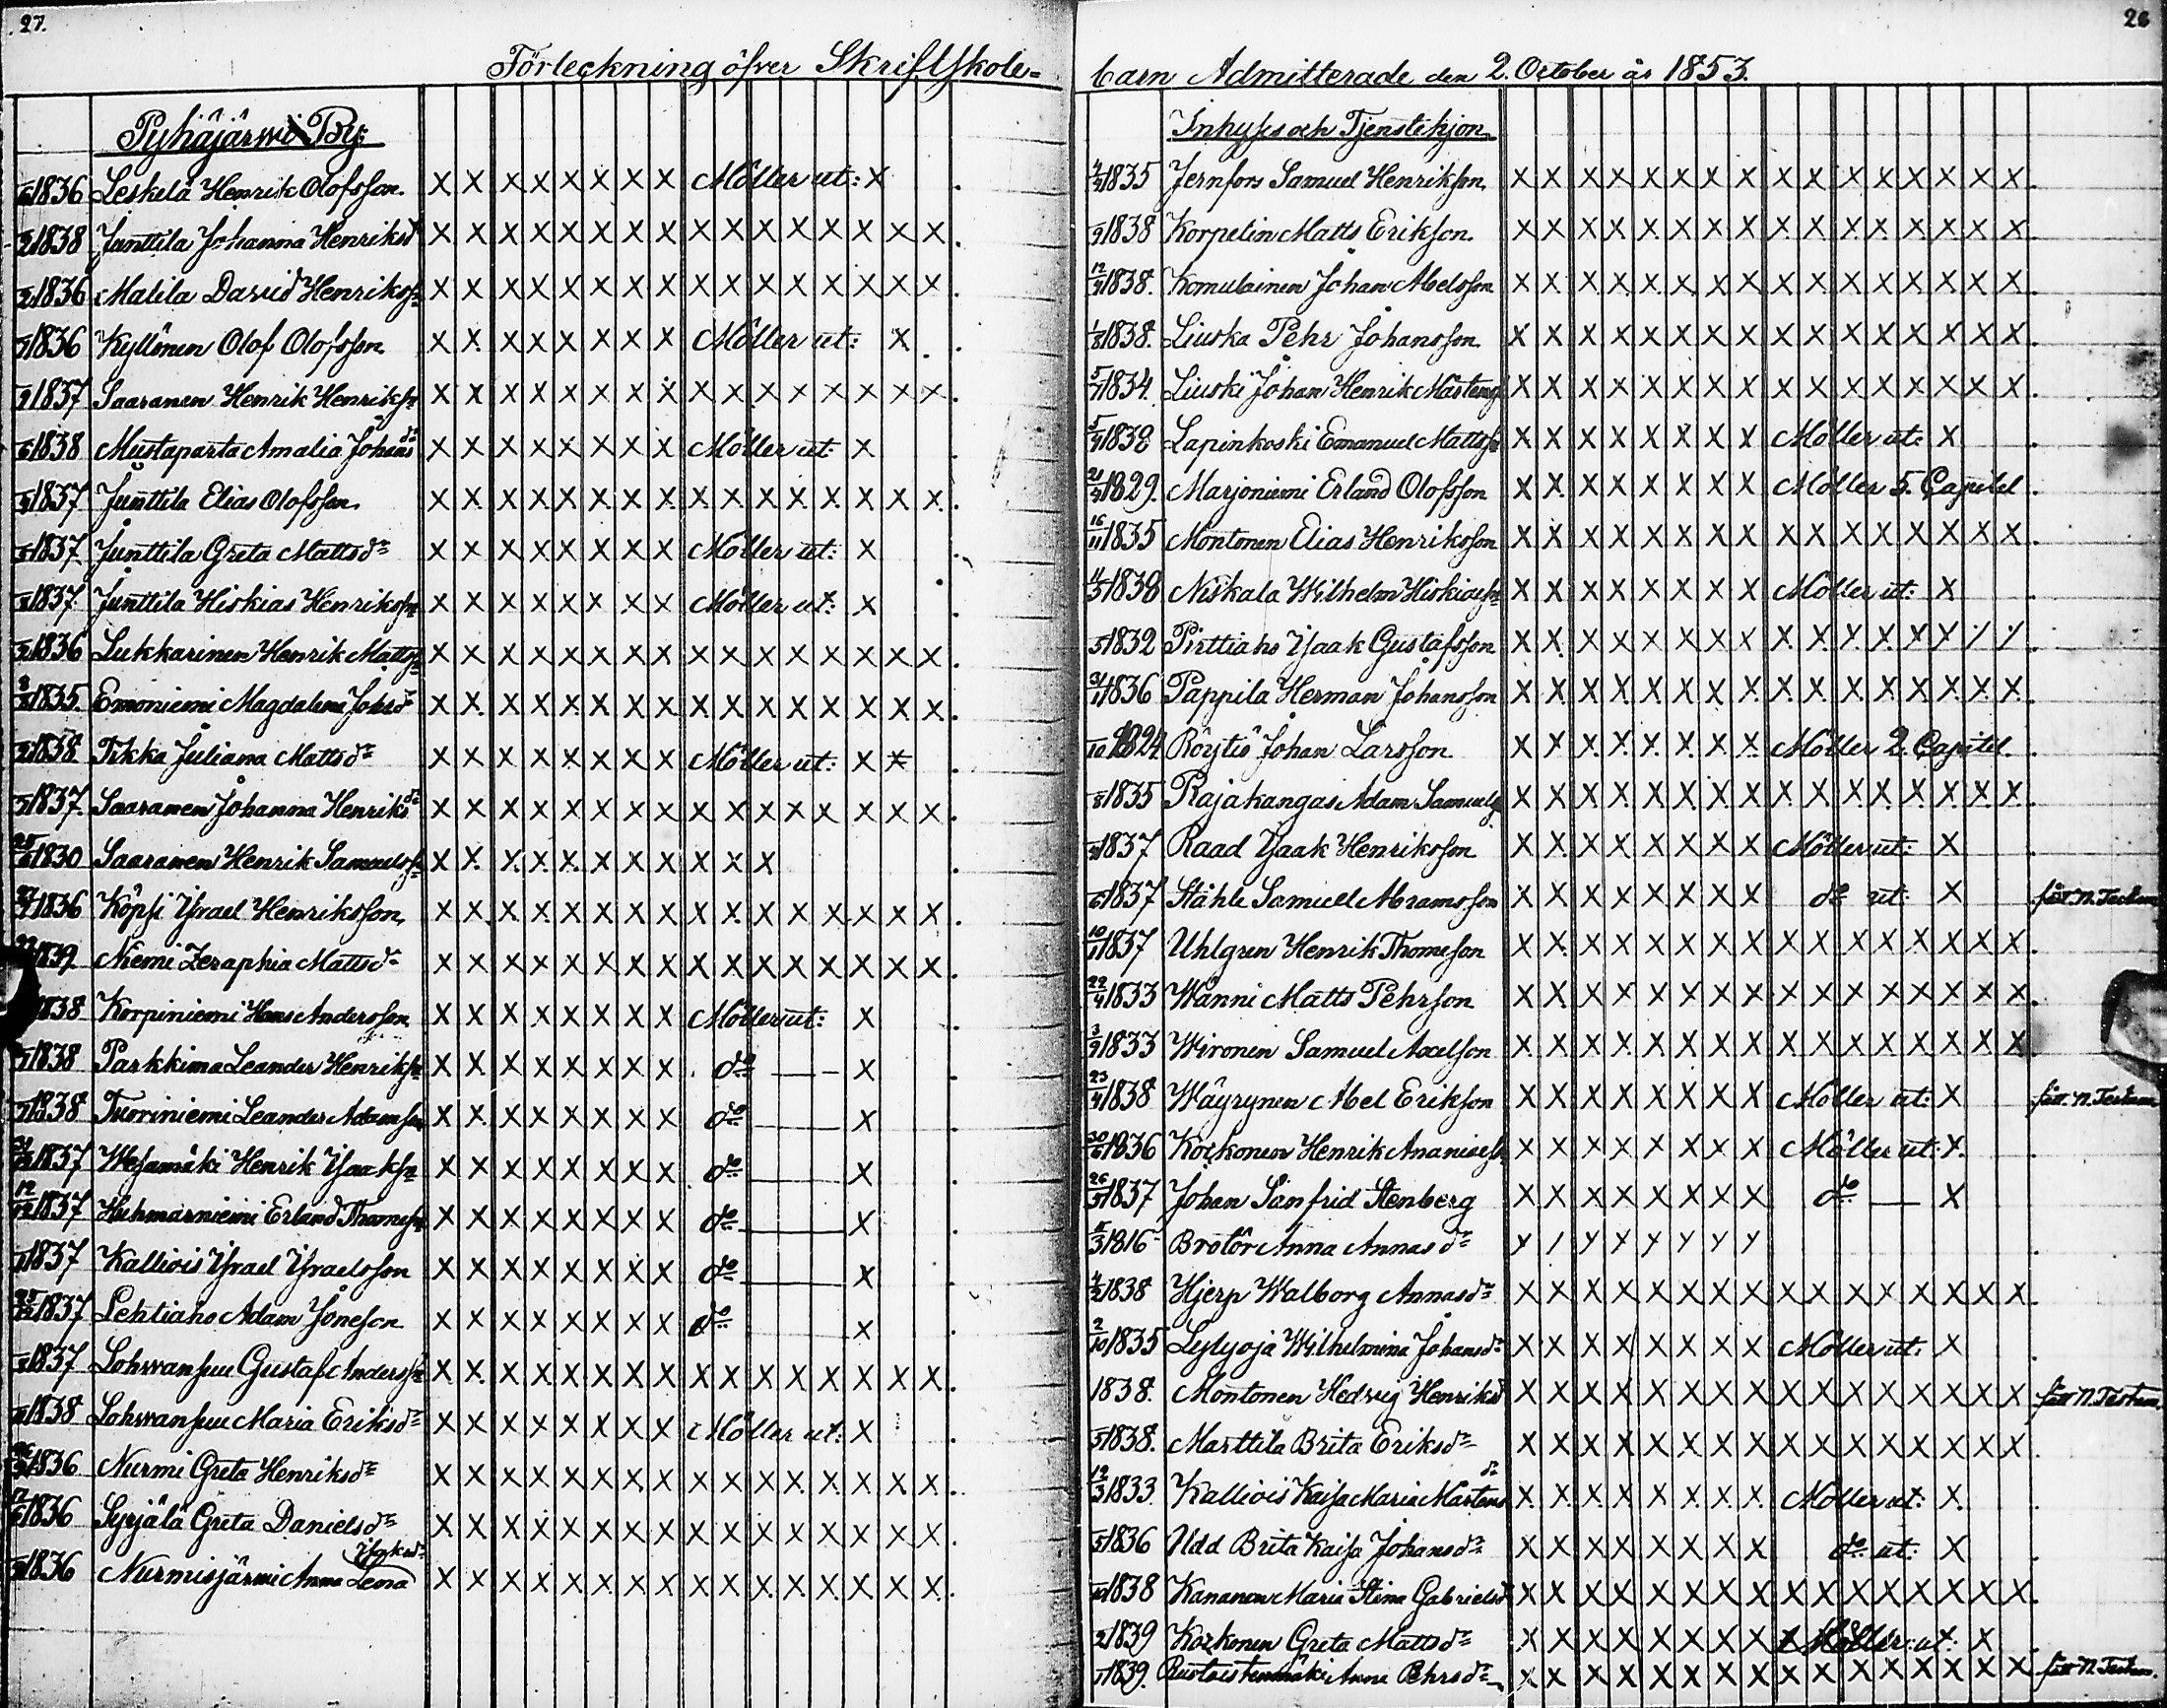 27.
Förteckning öfver Skriftskole=
Pyhäjärwi By:
1836 Leskelä Henrik Olofsson. X X X X X X X X Möller ut: X
1838 Junttila Johanna Henriksdr X X X X X X X X X X X X X X X X
1836 Matila David Henrikss: X X X X X X X X X X X X X X X X
1836 Kyllönen Olof Olofsson X X X X X X X X Möller ut: X
1837 Saaranen Henrik Henrikss: X X X X X X X X X X X X X X X X
1838 Mustaparta Amalia Johansdr X X X X X X X X Möller ut: X
1837 Junttila Elias Olofsson. X X X X X X X X X X X X X X X X
1837. Junttila Greta Mattsdr X X X X X X X X Möller ut: X
1837. Junttila Hiskias Henrikss: X X X X X X X X Möller ut: X
1836 Lukkarinen Henrik Mattss: X X X X X X X X X X X X X X X X
1835. Emoniemi Magdalena Johsdr X X X X X X X X X X X X X X X X
1838 Tikka Juliana Mattsdr X X X X X X X X Möller ut: X X
1837. Saaranen Johanna Henriksdr X X X X X X X X X X X X X X X X
1830 Saaranen Henrik Samuelss: X X X X X X X X X X X
1836 Köpsi Israel Henriksson, X X X X X X X X X X X X X X X X
1839 Niemi Zeraphia Mattsdr X X X X X X X X X X X X X X X X
1838 Korpiniemi Hans Andersson X X X X X X X X Möller ut: X
1838 Parkkima Leander Henrikss: X X X X X X X X do — X
1838 Tuoriniemi Leander Adamson X X X X X X X X do — X
1837 Wesamäki Henrik Isaakss: X X X X X X X X do — X
12/12 1837 Huhmarniemi Erland Thomess: X X X X X X X X do — X
1837 Kalliois Israel Israelsson X X X X X X X X do — X
1837 Lehtiaho Adam Joneson X X X X X X X X do — X
1837 Lohwansuu Gustaf Anderss: X X X X X X X X X X X X X X X X
1838 Lohwansuu Maria Eriksdr X X X X X X X X Möller ut: X
1836 Nurmi Greta Henriksdr X X X X X X X X X X X X X X X X
1836 Syrjälä Greta Danielsdr X X X X X X X X X X X X X X X X
Isaksdr
1836 Nurmisjärwi Anna Lena X X X X X X X X X X X X X X X X
28
barn Admitterade den 2. October år 1853.
Inhyses och Tjenstehjon
4/2 1835 Jernfors Samuel Henrikson, X X X X X X X X X X X X X X X X
1838 Korpelin Matts Erikson. X X X X X X X X X X X X X X X X
1838. Komulainen Johan Abelsson X X X X X X X X X X X X X X X X
1/8 1838. Liuska Pehr Johansson X X X X X X X X X X X X X X X X
1834. Liuski Johan Henrik Mårtens X X X X X X X X X X X X X X X X
1838 Lapinkoski Emanuel Mattss: X X X X X X X X Möller ut: X
1829. Marjoniemi Erland Olofsson X X X X X X X X Möller 5. Capitel
16/11 1835 Montonen Elias Henriksson X X X X X X X X X X X X X X X X
1838 Niskala Wilhelm Hiskiass: X X X X X X X X Möller ut: X
1832 Pirttiaho Isaak Gustafsson X X X X X X X X X X X X X X X X
1836 Pappila Herman Johansson X X X X X X X X X X X X X X X X
1824 Röytiö Johan Larsson X X X X X X X X Möller 2. Capitel.
1835 Rajakangas Adam Samuels X X X X X X X X X X X X X X X X
1837 Raad Isaak Henriksson X X X X X X X X Möller ut: X
1837 Ståhle Samuell Abramsson X X X X X X X X do ut: X fått N. Testam
10/11 1837 Uhlgren Henrik Thomeson X X X X X X X X X X X X X X X X
22/4 1833 Wänni Matts Pehrson X X X X X X X X X X X X X X X X
3/9 1833 Wironen Samuel Axelson X X X X X X X X X X X X X X X X
23/4 1838 Wäyrynen Abel Erikson X X X X X X X X Möller ut: X fått N. Testam
1836 Korkonen Henrik Ananiass X X X X X X X X Möller ut: X.
1837 Johan Sanfrid Stenberg X X X X X X X X do — X
1816 Brotör Anna Annasdr X X X X X X X X
4/2 1838 Hjerp Walborg Annasdr X X X X X X X X X X X X X X X X
2/10 1835 Lylyoja Wilhelmina Johansdr X X X X X X X X Möller ut: X
1838. Montonen Hedvig Henriksd X X X X X X X X X X X X X X X X fått N. Testam.
1838. Marttila Brita Eriksdr X X X X X X X X X X X X X X X X
12/3 1833 Kalliois Kaisa Maria Mårtensdr X X X X X X X X Möller ut: X
1836 Udd Brita Kaisa Johansdr X X X X X X X X do ut: X
1838 Kananen Maria Stina Gabrielsd X X X X X X X X X X X X X X X X
1839 Korkonen Greta Mattsdr X X X X X X X X Möller ut: X
1839. Anna Pehrsdr X X X X X X X X X X X X X X X X fått N. Testam.